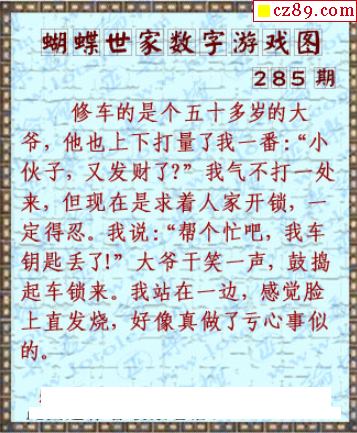 cz89.com
蝴蝶世家数字游戏图
285期
修车的是个五十多岁的大
爷，他也上下打量了我一番：“小
伙子，又发财了?”我气不打一处
来，但现在是求着人家开锁，一
定得忍。我说：“帮个忙吧，我车
钥匙丢了!”大爷干笑一声，鼓捣
起车锁来。我站在一边，感觉脸
上直发烧，好像真做了亏心事似
的。